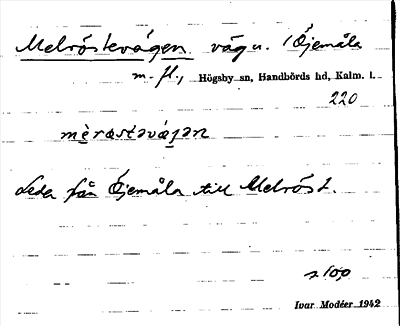 Melröstevägen vägn. i Öjemåla
m. fl., Högsby sn, Handbörds hd, Kalm. l.
220
mèrøstəvä̀jən
Leder från Öjemåla till Melröst.
s 100
Ivar Modéer 1942